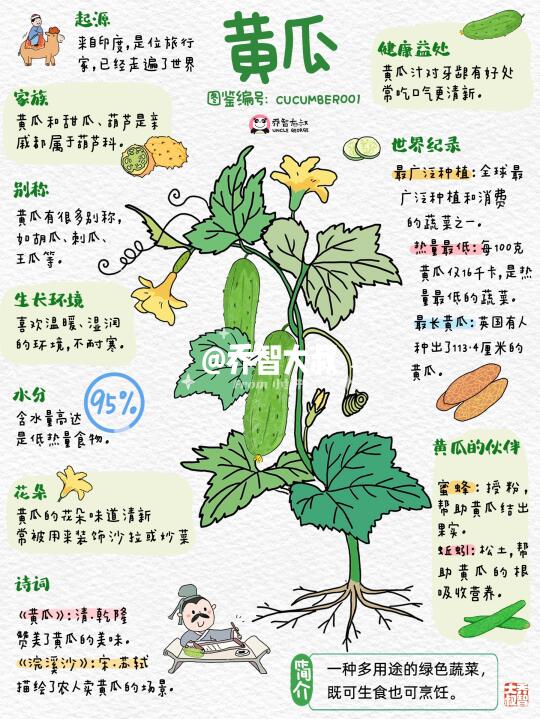 黄瓜
图鉴编号：CUCUMBER001
乔智大叔
UNCLE GEORGE
起源
来自印度，是位旅行
家，已经走遍了世界
家族
黄瓜和甜瓜、葫芦是亲
戚都属于葫芦科。
别称
黄瓜有很多别称，
如胡瓜、刺瓜、
王瓜等。
生长环境
喜欢温暖、湿润
的环境，不耐寒。
水分
95%
含水量高达
是低热量食物。
花朵
黄瓜的花朵味道清新
常被用来装饰沙拉或炒菜
诗词
《黄瓜》：清·乾隆
赞美了黄瓜的美味。
《浣溪沙》：宋·苏轼
描绘了农人卖黄瓜的场景。
健康益处
黄瓜汁对牙龈有好处
常吃口气更清新。
世界纪录
最广泛种植：全球最
广泛种植和消费
的蔬菜之一。
热量最低：每100克
黄瓜仅16千卡，是热
量最低的蔬菜。
最长黄瓜：英国有人
种出了113.4厘米的
黄瓜。
@乔智大叔
From
黄瓜的伙伴
蜜蜂：授粉，
帮助黄瓜结出
果实。
蚯蚓：松土，帮
助黄瓜的根
吸收营养。
简介
一种多用途的绿色蔬菜，
既可生食也可烹饪。
乔智
大叔